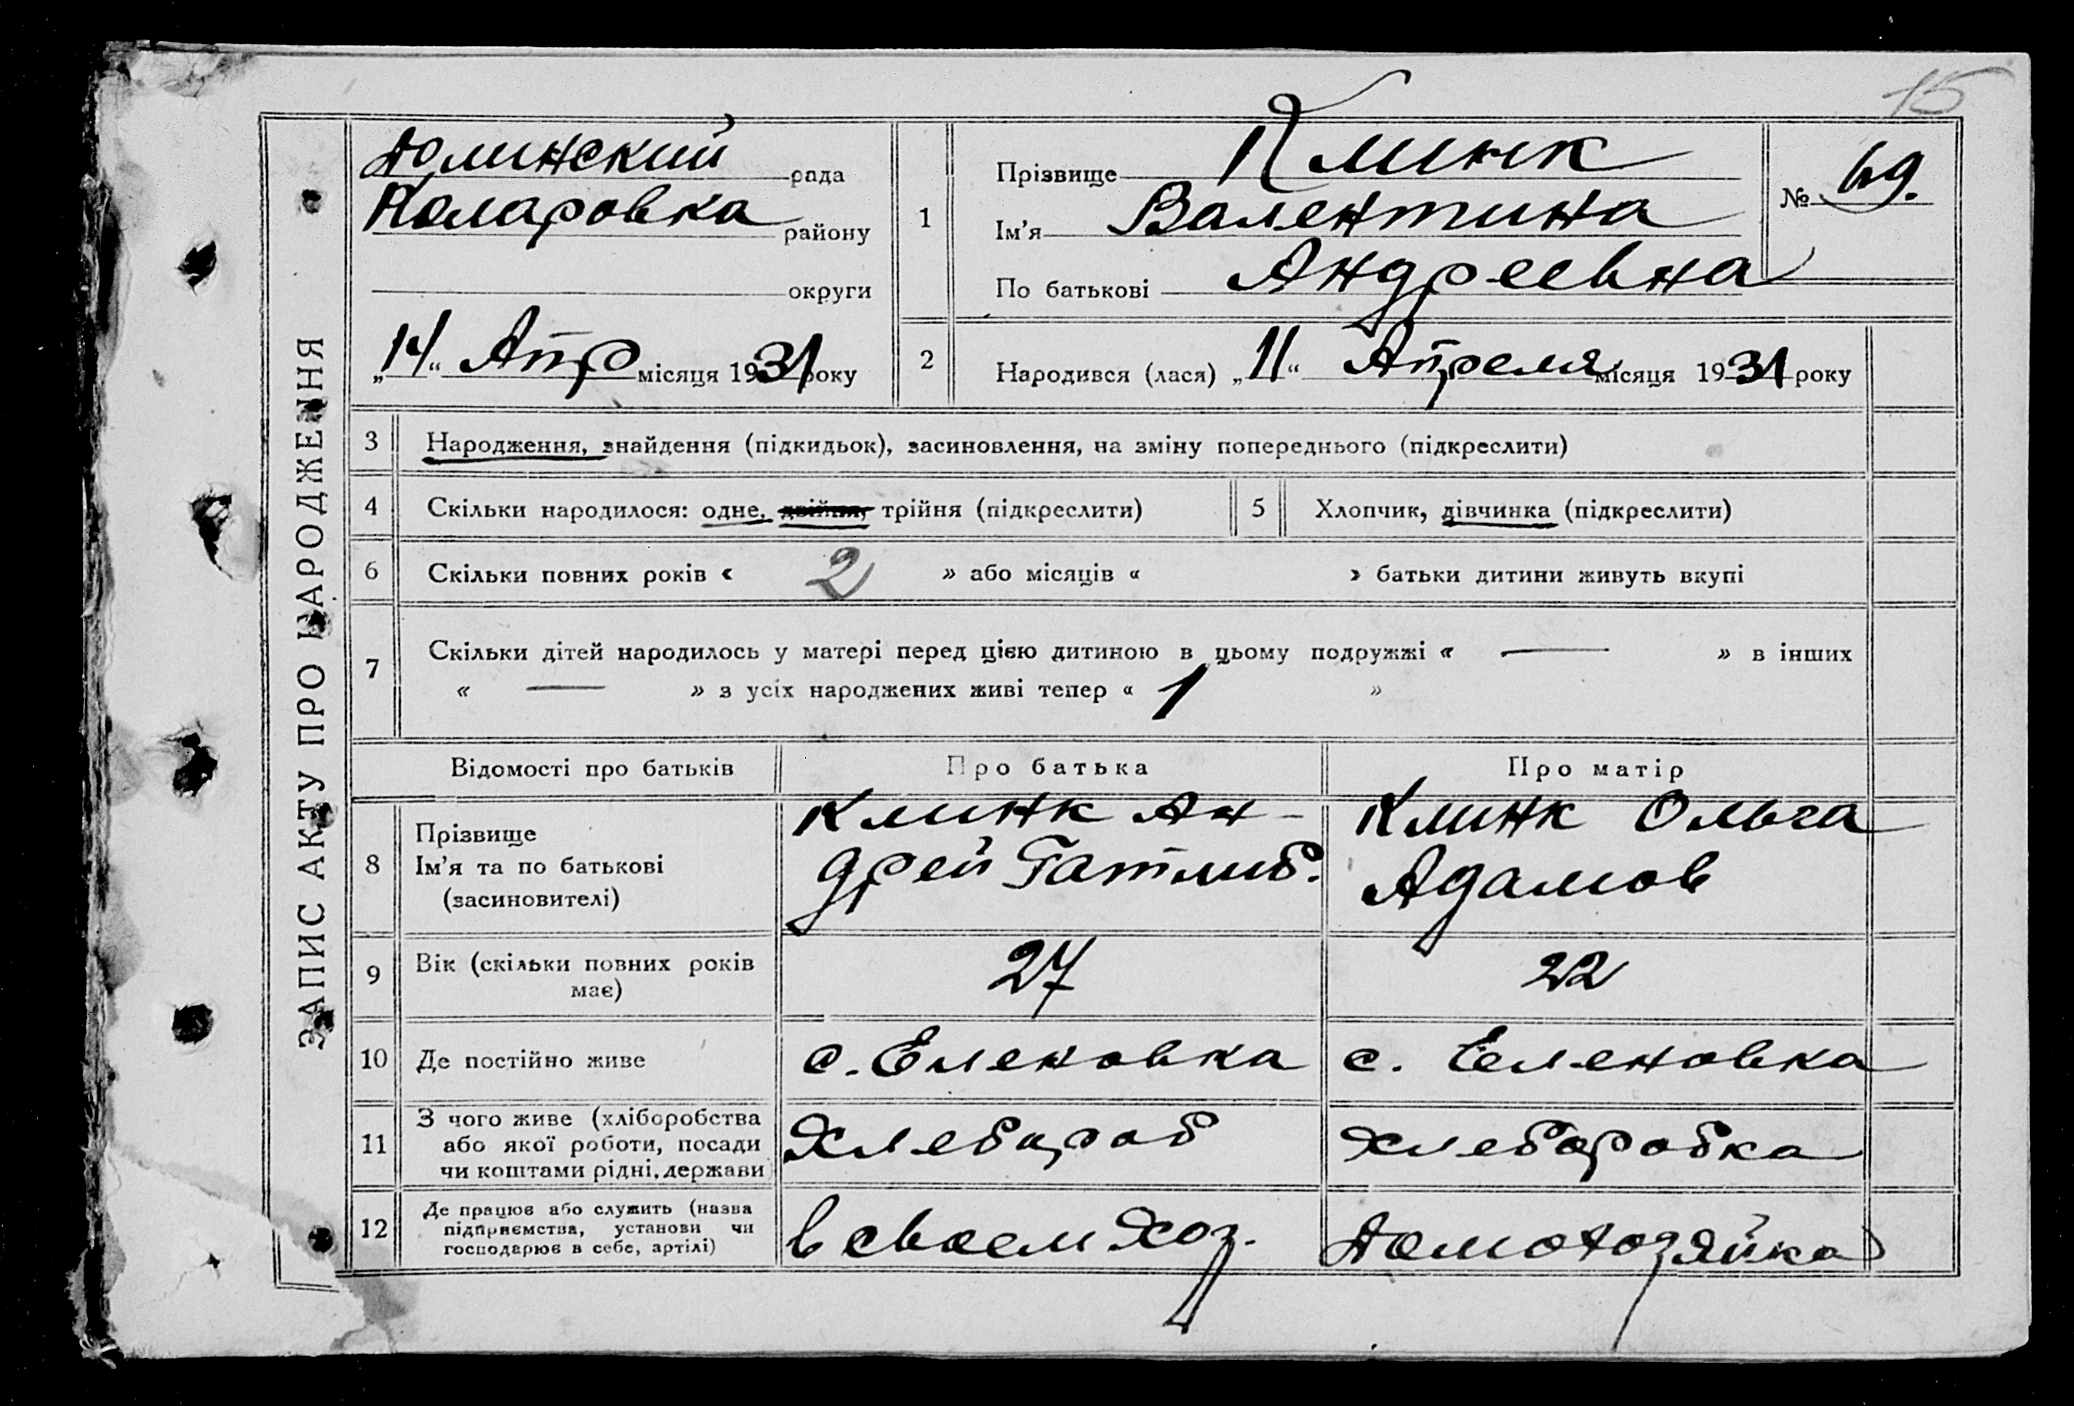 15
ЗАПИС АКТУ ПРО НАРОДЖЕННЯ
Долинский рада
Коларовка району
округи
„14“ Апр місяця 1931 року
1
Прізвище Клинк
Ім’я Валентина
По батькові Андреевна
№ 69.
2
Народився (лася) „11“ Апреля місяця 1931 року
3 Народження, знайдення (підкидьок), засиновлення, на зміну попереднього (підкреслити)
4 Скільки народилося: одне, двійня, трійня (підкреслити)
5 Хлопчик, дівчинка (підкреслити)
6 Скільки повних років « 2 » або місяців « » батьки дитини живуть вкупі
7 Скільки дітей народилось у матері перед цією дитиною в цьому подружжі « — » в інших
« — » з усіх народжених живі тепер « 1 »
Відомості про батьків Про батька Про матір
8 Прізвище
Ім’я та по батькові
(засиновителі)
Клинк Ан-
дрей Гатлиб.
Клинк Ольга
Адамов
9 Вік (скільки повних років
має)
27
22
10 Де постійно живе
с. Еленовка
с. Еленовка
11 З чого живе (хліборобства
або якої роботи, посади
чи коштами рідні, держави
Хлебороб
Хлеборобка
12 Де працює або служить (назва
підприємства, установи чи
господарює в себе, артілі)
в своем хоз.
Домохозяйка